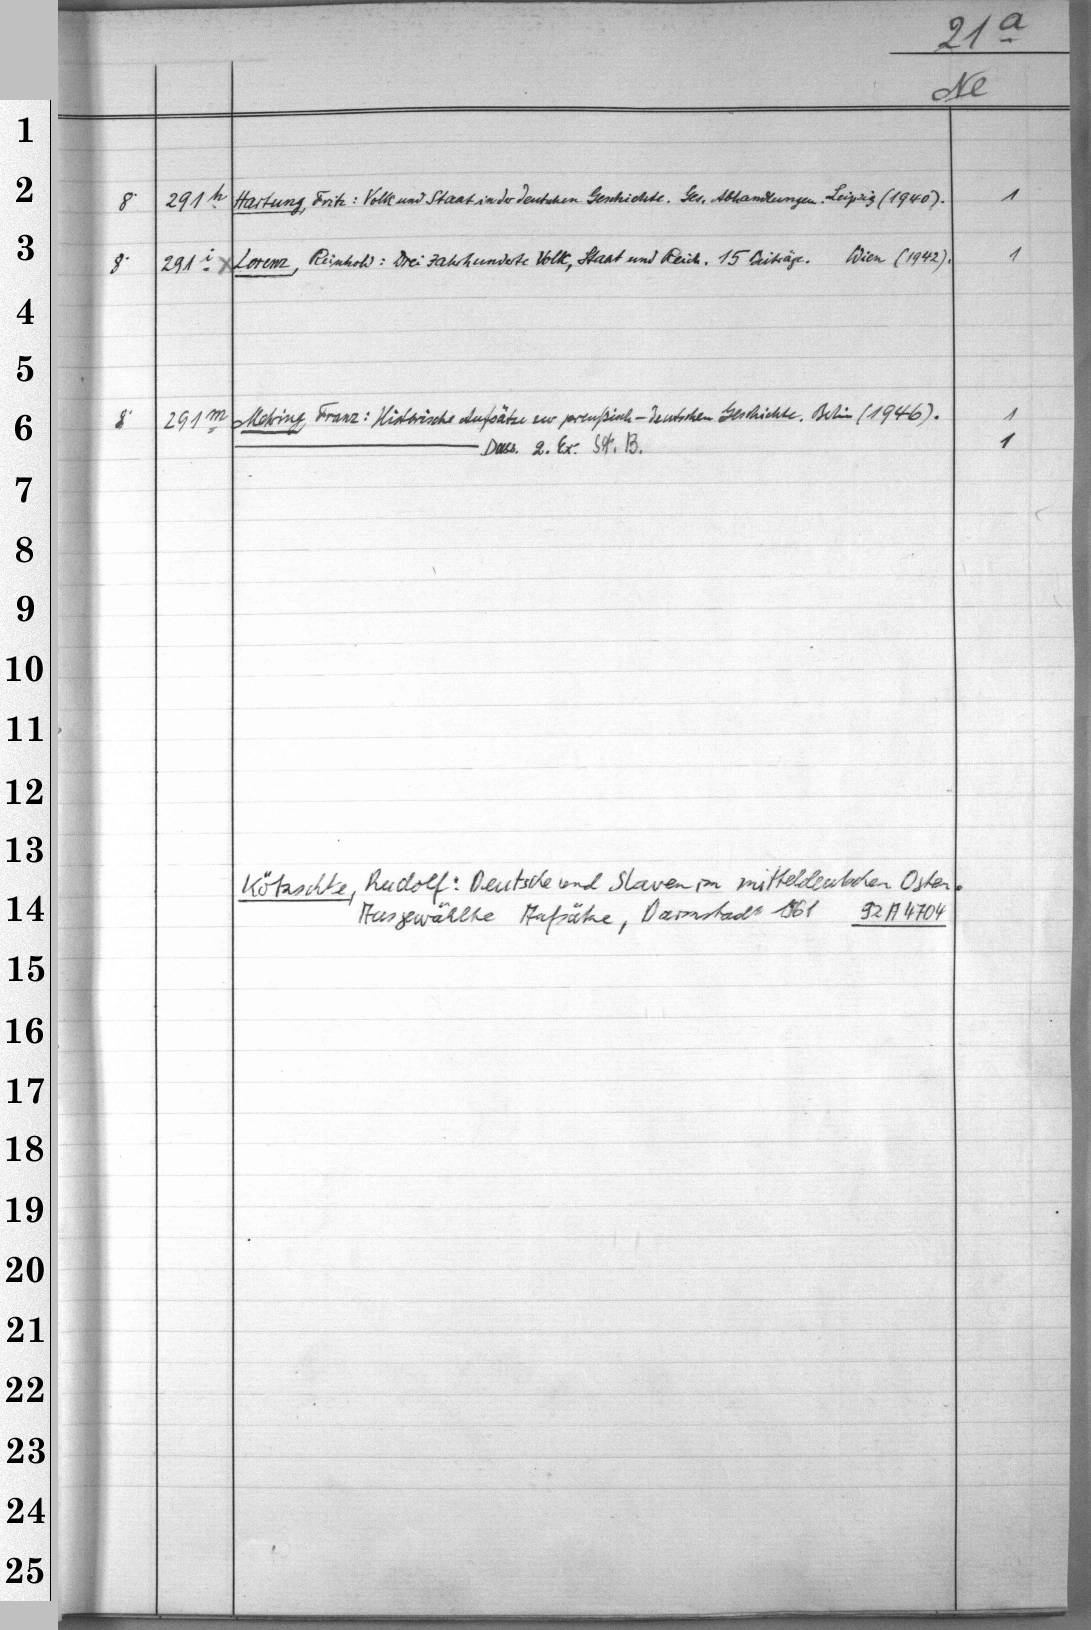 21 a
Ne
1
2
8° 291 h Hartung, Fritz: Volk und Staat in der deutschen Geschichte. Ges. Abhandlungen. Leipzig (1940). 1
3
8° 291 i x Lorenz, Reinhold: Drei Jahrhunderte Volk, Staat und Reich. 15 Beiträge. Wien (1942). 1
4
5
6
8° 291 m Mehring, Franz: Historische Aufsätze zur preußisch-deutschen Geschichte. Berlin (1946). 1
Dass. 2. Ex. St. B. 1
7
8
9
10
11
12
13
Kötzschke, Rudolf: Deutsche und Slaven im mitteldeutschen Osten.
14
Ausgewählte Aufsätze, Darmstadt 1961 92 A 4704
15
16
17
18
19
20
21
22
23
24
25